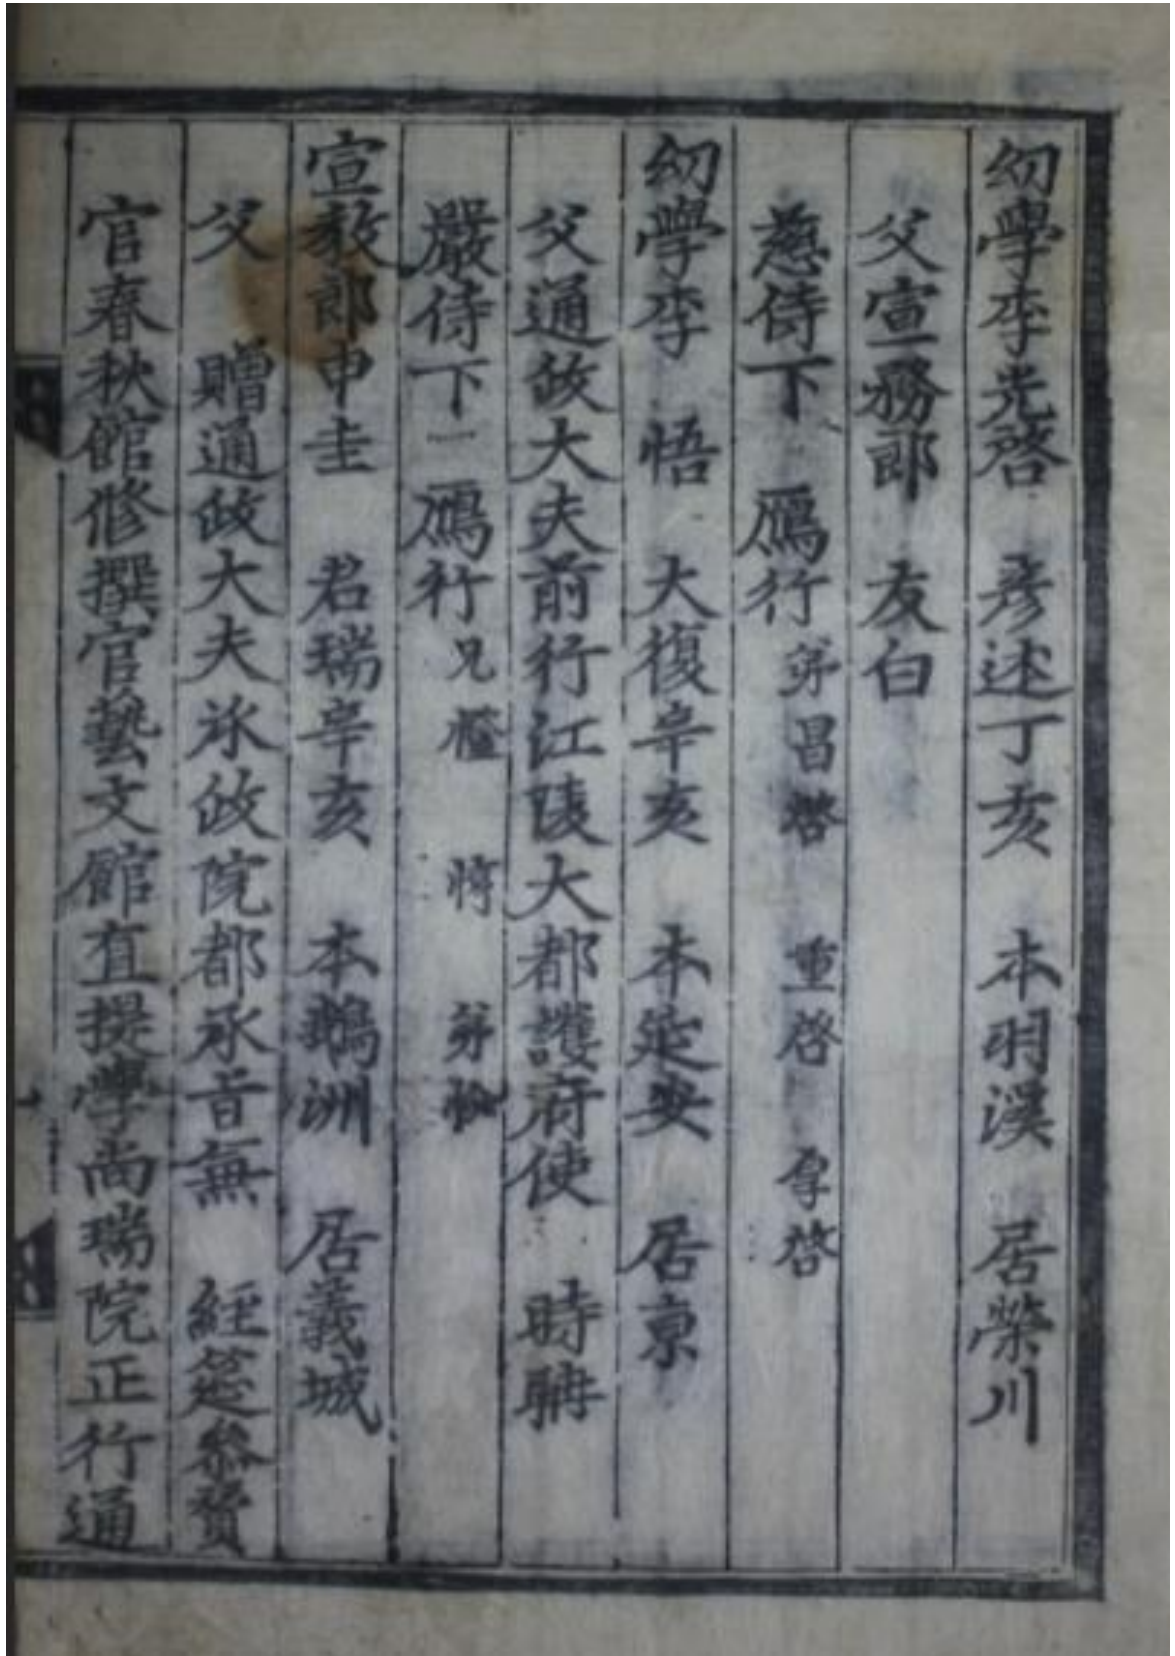 幼學李光啓　彦述丁亥　本明溪　居榮川
父宣務郎　友白
慈侍下　鴈行弟昌啓　重啓　厚啓
幼學李　悟　大復辛亥　本延安　居京
父通政大夫前行江陵大都護府使　時聃
嚴侍下　鴈行兄　弟
宣教郎申圭　君瑞辛亥　本鵝洲　居義城
父　贈通政大夫承政院都承旨兼　經筵參賛
官春秋館修撰官藝文館直提學尚瑞院正行通